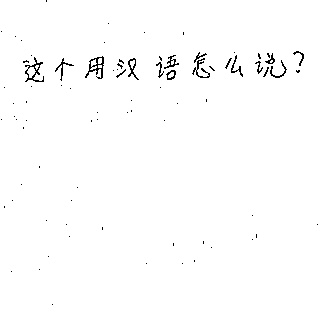 这个用汉语怎么说?